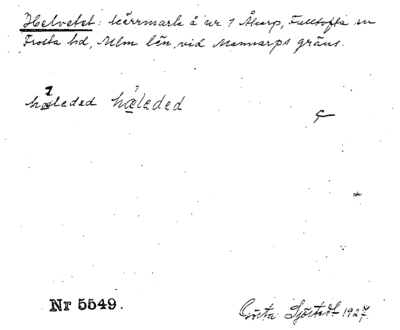 Helvetet: kärrmark å nr 1 Åkarp, Fulltofta sn
Frosta hd, Mlm län, vid Munnarps gräns.
hæleded hæleded
Nr 5549.
Gösta Sjöstedt 1927.